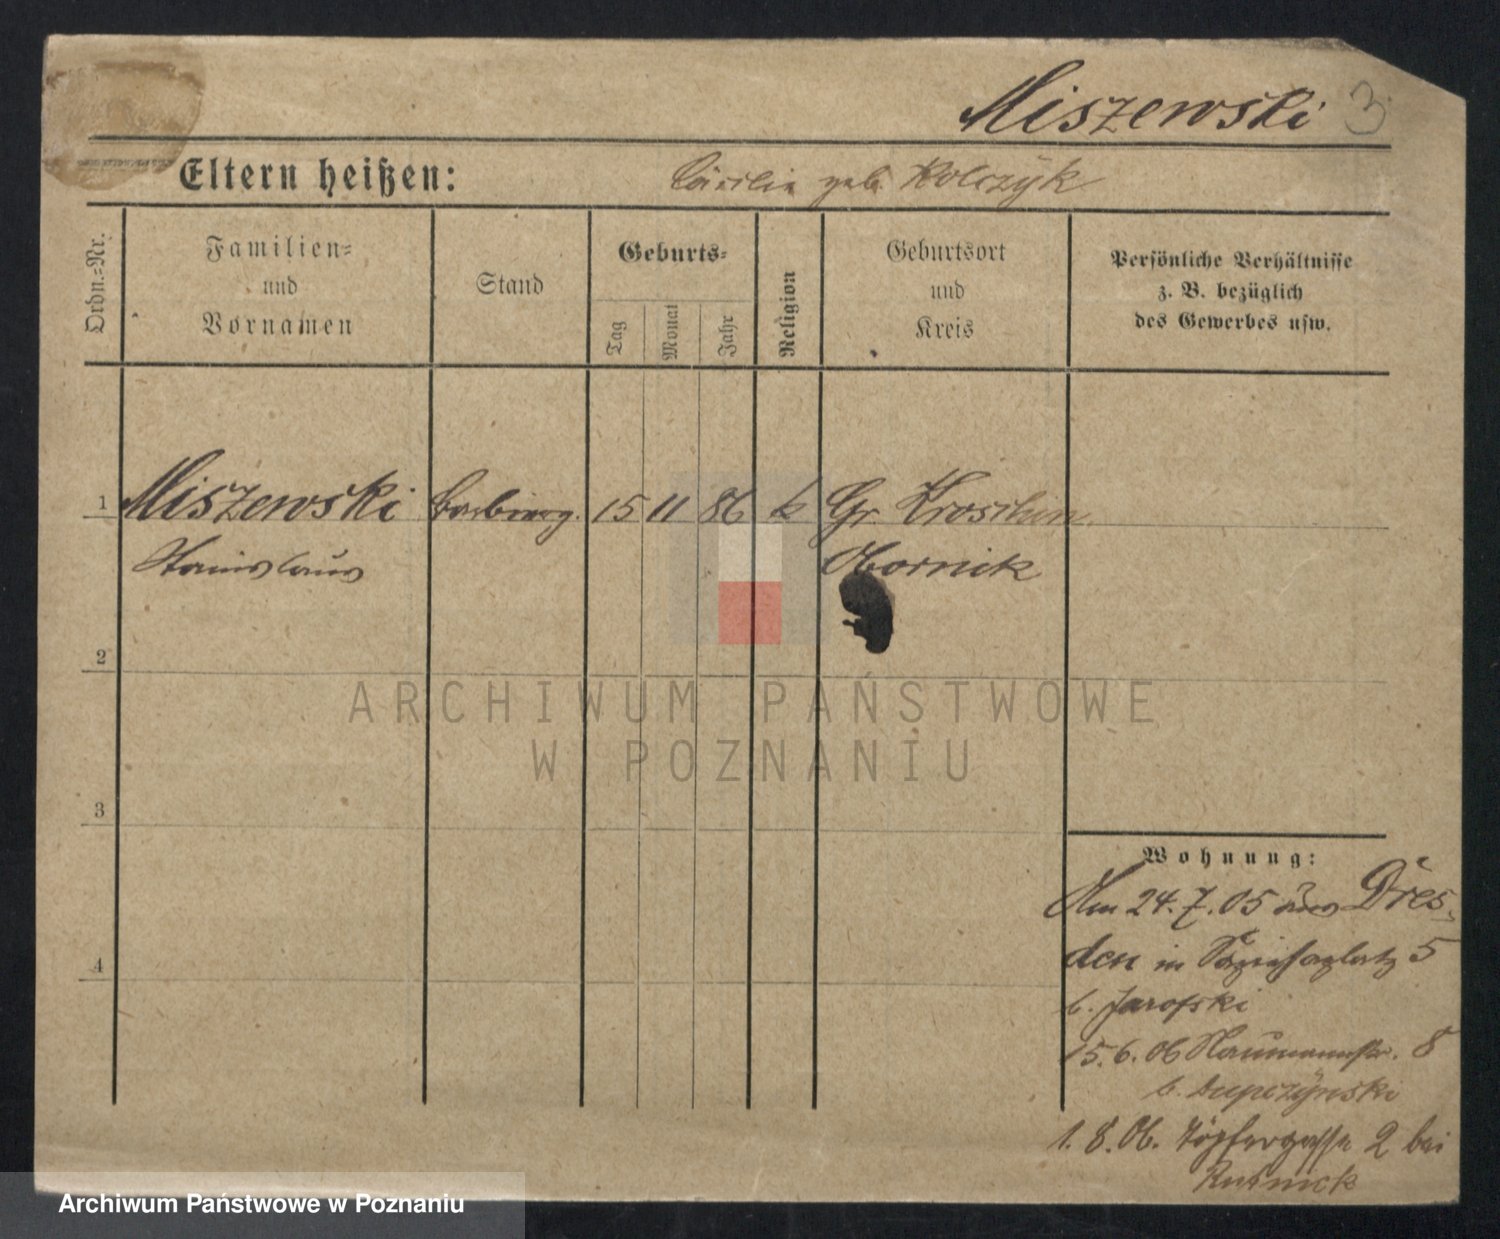 Miszewski 3
Eltern heißen: Cäcilia geb. Kolczyk
Ordn.=Nr.
Familien=
und
Vornamen
Stand
Geburts=
Tag
Monat
Jahr
Religion
Geburtsort
und
Kreis
Persönliche Verhältnisse
z. B. bezüglich
des Gewerbes usw.
1 Miszewski 15 11 86 k Gr. Kroschin
Stanislaus Obornik
2
3
4
Wohnung:
Am 24.7.05 aus Dres-
den in 5
b. Jarofski
15.6.06 Naumannstr. 8
b. Dupczynski
1.8.06. Töpfergasse 2 bei
ARCHIWUM PAŃSTWOWE
W POZNANIU
Archiwum Państwowe w Poznaniu